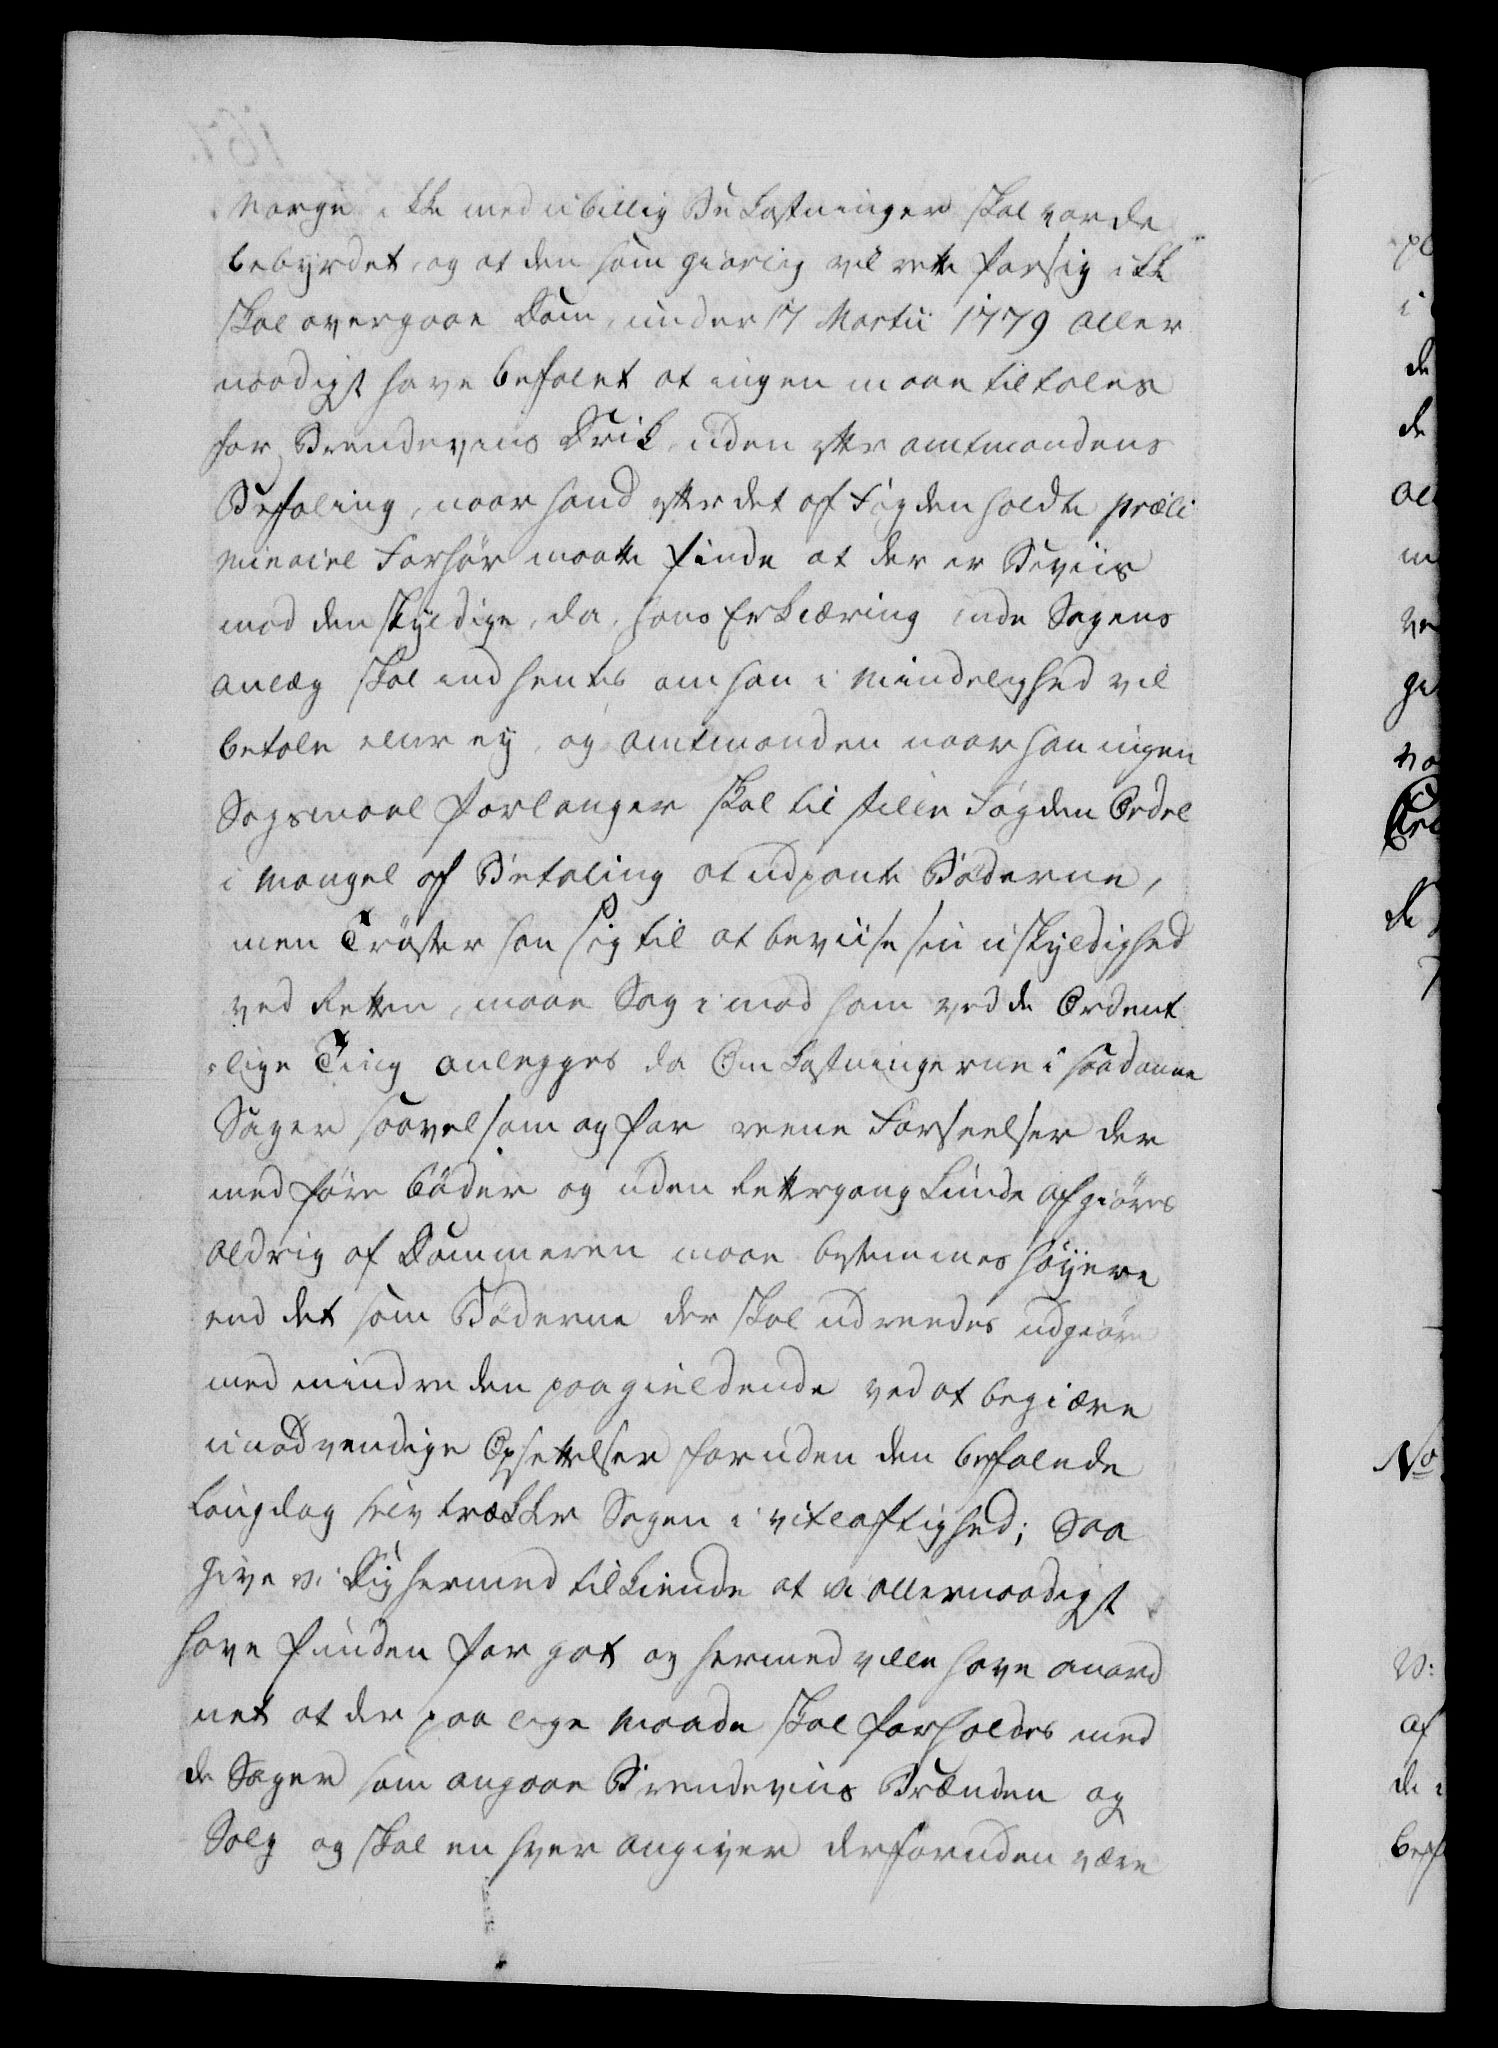 Norge ikke med ubillig Bekostninger skal vorde
bebyrdet, og at den som giørlig vil rette for sig ikke
skal overgaae Dom, under 17 Martii 1779 aller
naadigst have befalet at ingen maae tiltales
for Brendeviins Drik, uden efter amtmandens
Befaling, naar hand efter det af Fogden holdte præli
minaire Forhør maatte finde at der er Beviis
mod den skyldige, da, hans Erklæring inden Sagens
anlæg skal indhentes om han i Mindelighed vil
betale eller ey, og amtmanden naar han ingen
Sagsmaal forlanger skal tilstille Fogden Ordre
i Mangel af Betaling at udpante Bøderne,
men Trøster han sig til at beviise sin uskyldighed
ved Retten, maae Sag imod ham ved de Ordent
lige Ting anlegges da Omkostningerne i saadanne
Sager saavelsom og for reene Forseelser der
medføre bøder og uden Rettergang kunde afgiøres
aldrig af Dommeren maae bestemmes høyere
end det som Bøderne der skal udreedes udgiøre
med mindre den paagieldende ved at begiære
unødvendige Opsettelser foruden den befalede
Laugdag selv trækker Sagen i vitløftighed; Saa
give vi Dig hermed tilkiende at vi allernaadigst
have funden for got og hermed ville have anord
net at der paa lige Maade skal forholdes med
de Sager som angaae Brendeviins Brænden og
Salg og skal en hver angiver derforuden være